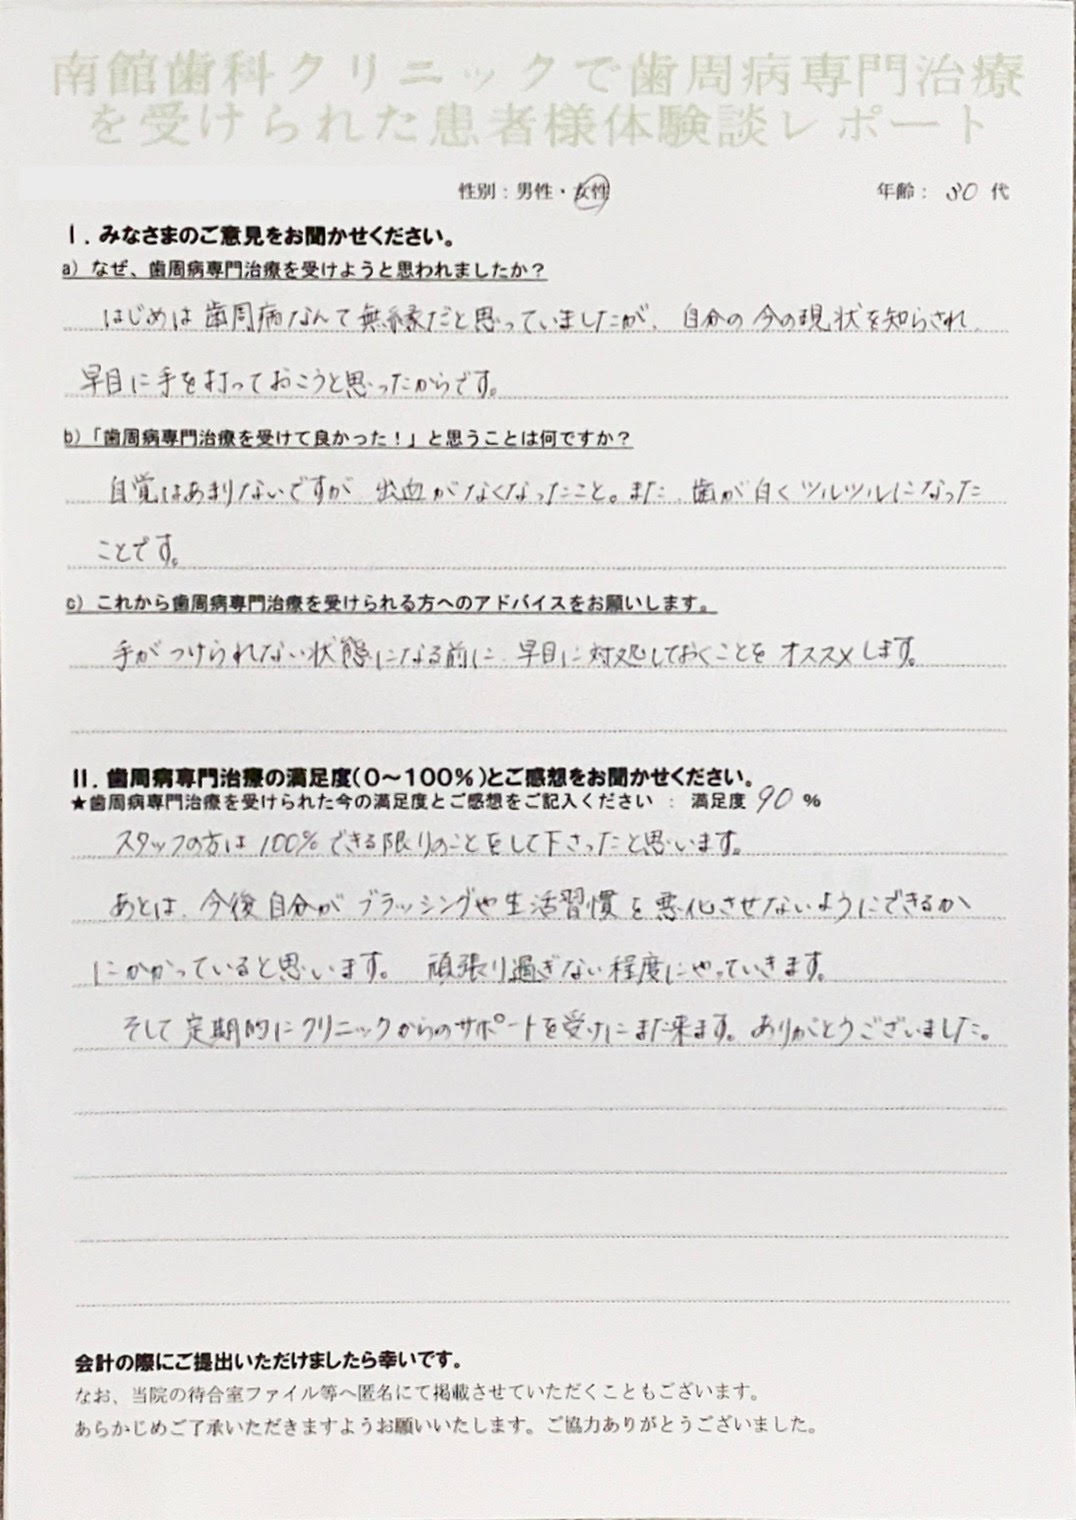 南館歯科クリニックで歯周病専門治療
を受けられた患者様体験談レポート
性別：男性・女性 年齢： 30 代
Ⅰ．みなさまのご意見をお聞かせください。
a）なぜ、歯周病専門治療を受けようと思われましたか？
はじめは歯周病なんて無縁だと思っていましたが、自分の今の現状を知らされ、
早目に手を打っておこうと思ったからです。
b）「歯周病専門治療を受けて良かった！」と思うことは何ですか？
自覚はあまりないですが、出血がなくなったこと。また、歯が白くツルツルになった
ことです。
c）これから歯周病専門治療を受けられる方へのアドバイスをお願いします。
手がつけられない状態になる前に、早目に対処しておくことをオススメします。
Ⅱ．歯周病専門治療の満足度（０～１００％）とご感想をお聞かせください。
★歯周病専門治療を受けられた今の満足度とご感想をご記入ください ： 満足度 90 %
スタッフの方は100%できる限りのことをして下さったと思います。
あとは、今後自分がブラッシングや生活習慣を悪化させないようにできるか
にかかっていると思います。 頑張り過ぎない程度にやっていきます。
そして定期的にクリニックからのサポートを受けにまた来ます。ありがとうございました。
会計の際にご提出いただけましたら幸いです。
なお、当院の待合室ファイル等へ匿名にて掲載させていただくこともございます。
あらかじめご了承いただきますようお願いいたします。ご協力ありがとうございました。